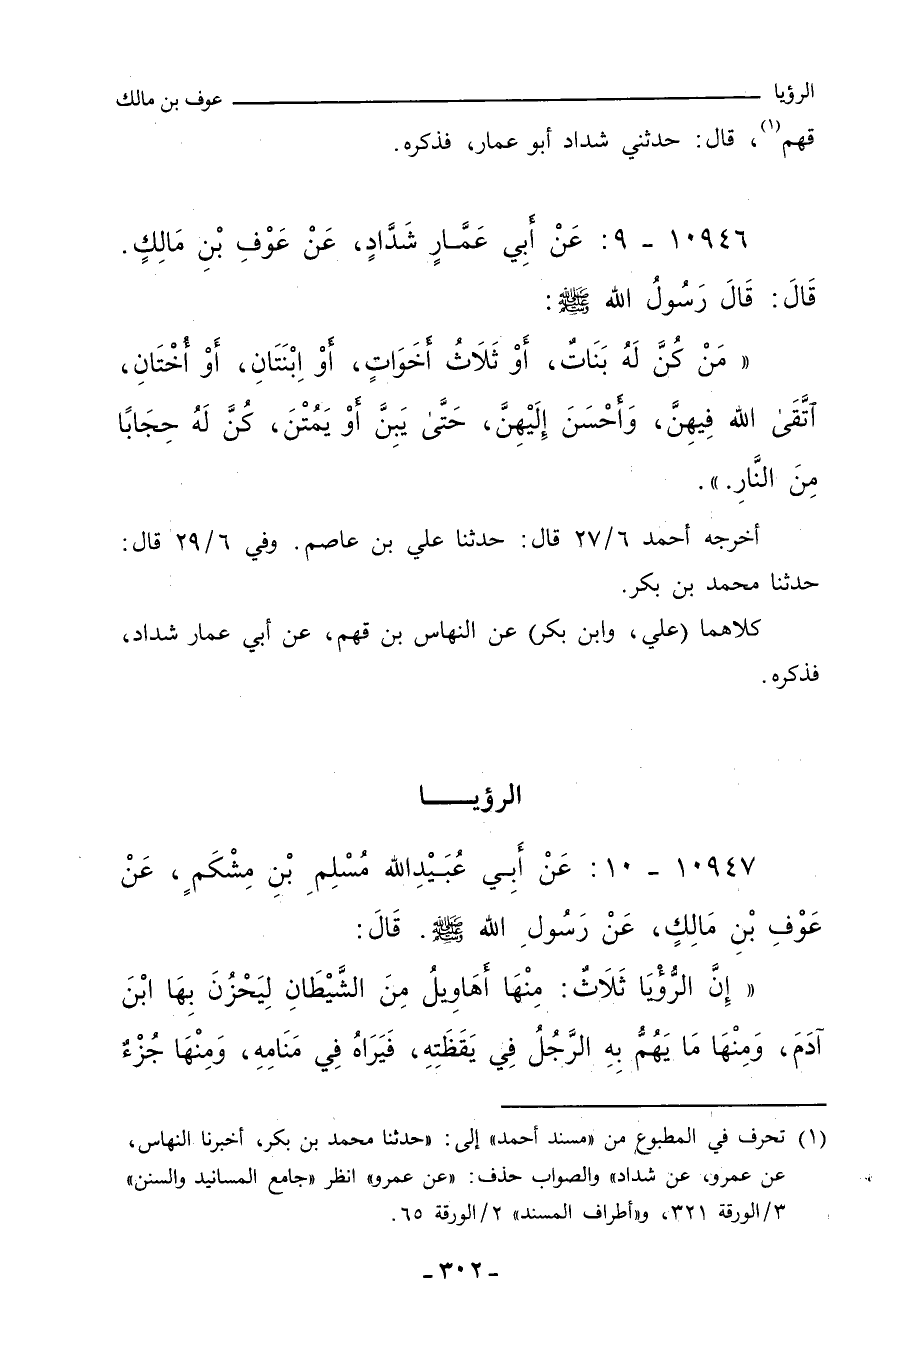 الرؤيا ــــــــــ عوف بن مالك
قهم(١)، قال: حدثني شداد أبو عمار، فذكره.
١٠٩٤٦ - ٩: عَنْ أَبِي عَمَّارٍ شَدَّادٍ، عَنْ عَوْفِ بْنِ مَالِكٍ.
قَالَ: قَالَ رَسُولُ الله ﷺ:
« مَنْ كُنَّ لَهُ بَنَاتٌ، أَوْ ثَلَاثُ أَخَوَاتٍ، أَوْ اِبْنَتَانِ، أَوْ أُخْتَانِ،
ٱتَّقَىٰ الله فِيهِنَّ، وَأَحْسَنَ إِلَيْهِنَّ، حَتَّىٰ يَبِنَّ أَوْ يَمُتْنَ، كُنَّ لَهُ حِجَابًا
مِنَ النَّارِ.».
أخرجه أحمد ٢٧/٦ قال: حدثنا علي بن عاصم. وفي ٢٩/٦ قال:
حدثنا محمد بن بكر.
كلاهما (علي، وابن بكر) عن النهاس بن قهم، عن أبي عمار شداد،
فذكره.
الرؤيـــا
١٠٩٤٧ - ١٠: عَنْ أَبِي عُبَيْدِالله مُسْلِمِ بْنِ مِشْكَمٍ، عَنْ
عَوْفِ بْنِ مَالِكٍ، عَنْ رَسُولِ الله ﷺ. قَالَ:
« إِنَّ الرُّؤْيَا ثَلَاثٌ: مِنْهَا أَهَاوِيلُ مِنَ الشَّيْطَانِ لِيَحْزُنَ بِهَا ابْنَ
آدَمَ، وَمِنْهَا مَا يَهُمُّ بِهِ الرَّجُلُ فِي يَقَظَتِهِ، فَيَرَاهُ فِي مَنَامِهِ، وَمِنْهَا جُزْءٌ
(١) تحرف في المطبوع من «مسند أحمد» إلى: «حدثنا محمد بن بكر، أخبرنا النهاس،
عن عمرو، عن شداد» والصواب حذف: «عن عمرو» انظر «جامع المسانيد والسنن»
٣/الورقة ٣٢١، و«أطراف المسند» ٢/الورقة ٦٥.
- ٣٠٢ -